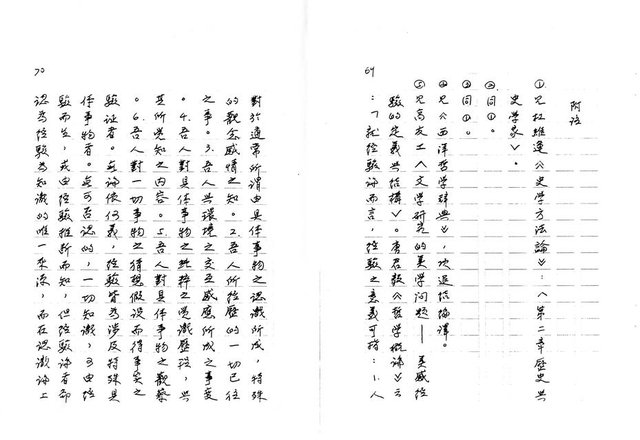 69
附註
①見杜維運《史學方法論》:〈第二章歷史與
史學家〉。
②同①。
③同①。
④見《西洋哲學辭典》,項退結編譯。
⑤見高友工〈文學研究的美學問題—美感經
驗的定義與結構〉。唐君毅《哲學概論》云
:「就經驗論而言,經驗之意義可指:1.人
70
對於通常所謂由具体事物之認識所成,特殊
的觀念感情之知。2.吾人所經歷的一切已往
之事。3.吾人與環境之交互感應所成之事變
。4.吾人對具体事物之純粹之覺識歷程,與
其所覺知之內容。5.吾人對具体事物之觀察
。6.吾人對一切事物之猜想假設而待事實之
驗証者。無論依何義,經驗皆為涉及特殊具
体事物者。無可否認的,一切知識,可由經
驗而生,或由經驗推新而知,但經驗論者却
認為經驗為知識的唯一來源,而在認識論上